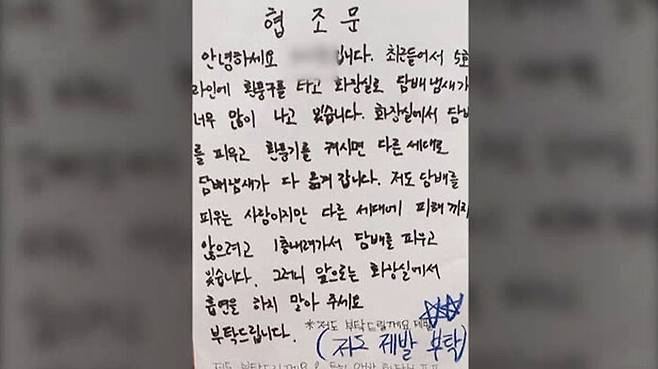 협 조 문
안녕하세요 입니다. 최근들어서 5호
라인에 환풍구를 타고 화장실로 담배냄새가
너무 많이 나고 있습니다. 화장실에서 담배
를 피우고 환풍기를 켜시면 다른 세대로
담배냄새가 다 옮겨 갑니다. 저도 담배를
피우는 사람이지만 다른 세대에 피해 끼치
않으려고 1층내려가서 담배를 피우고
있습니다. 그러니 앞으로는 화장실에서
흡연을 하지 말아 주세요
부탁드립니다. *저도 부탁드릴께요 제발
(저도 제발 부탁)